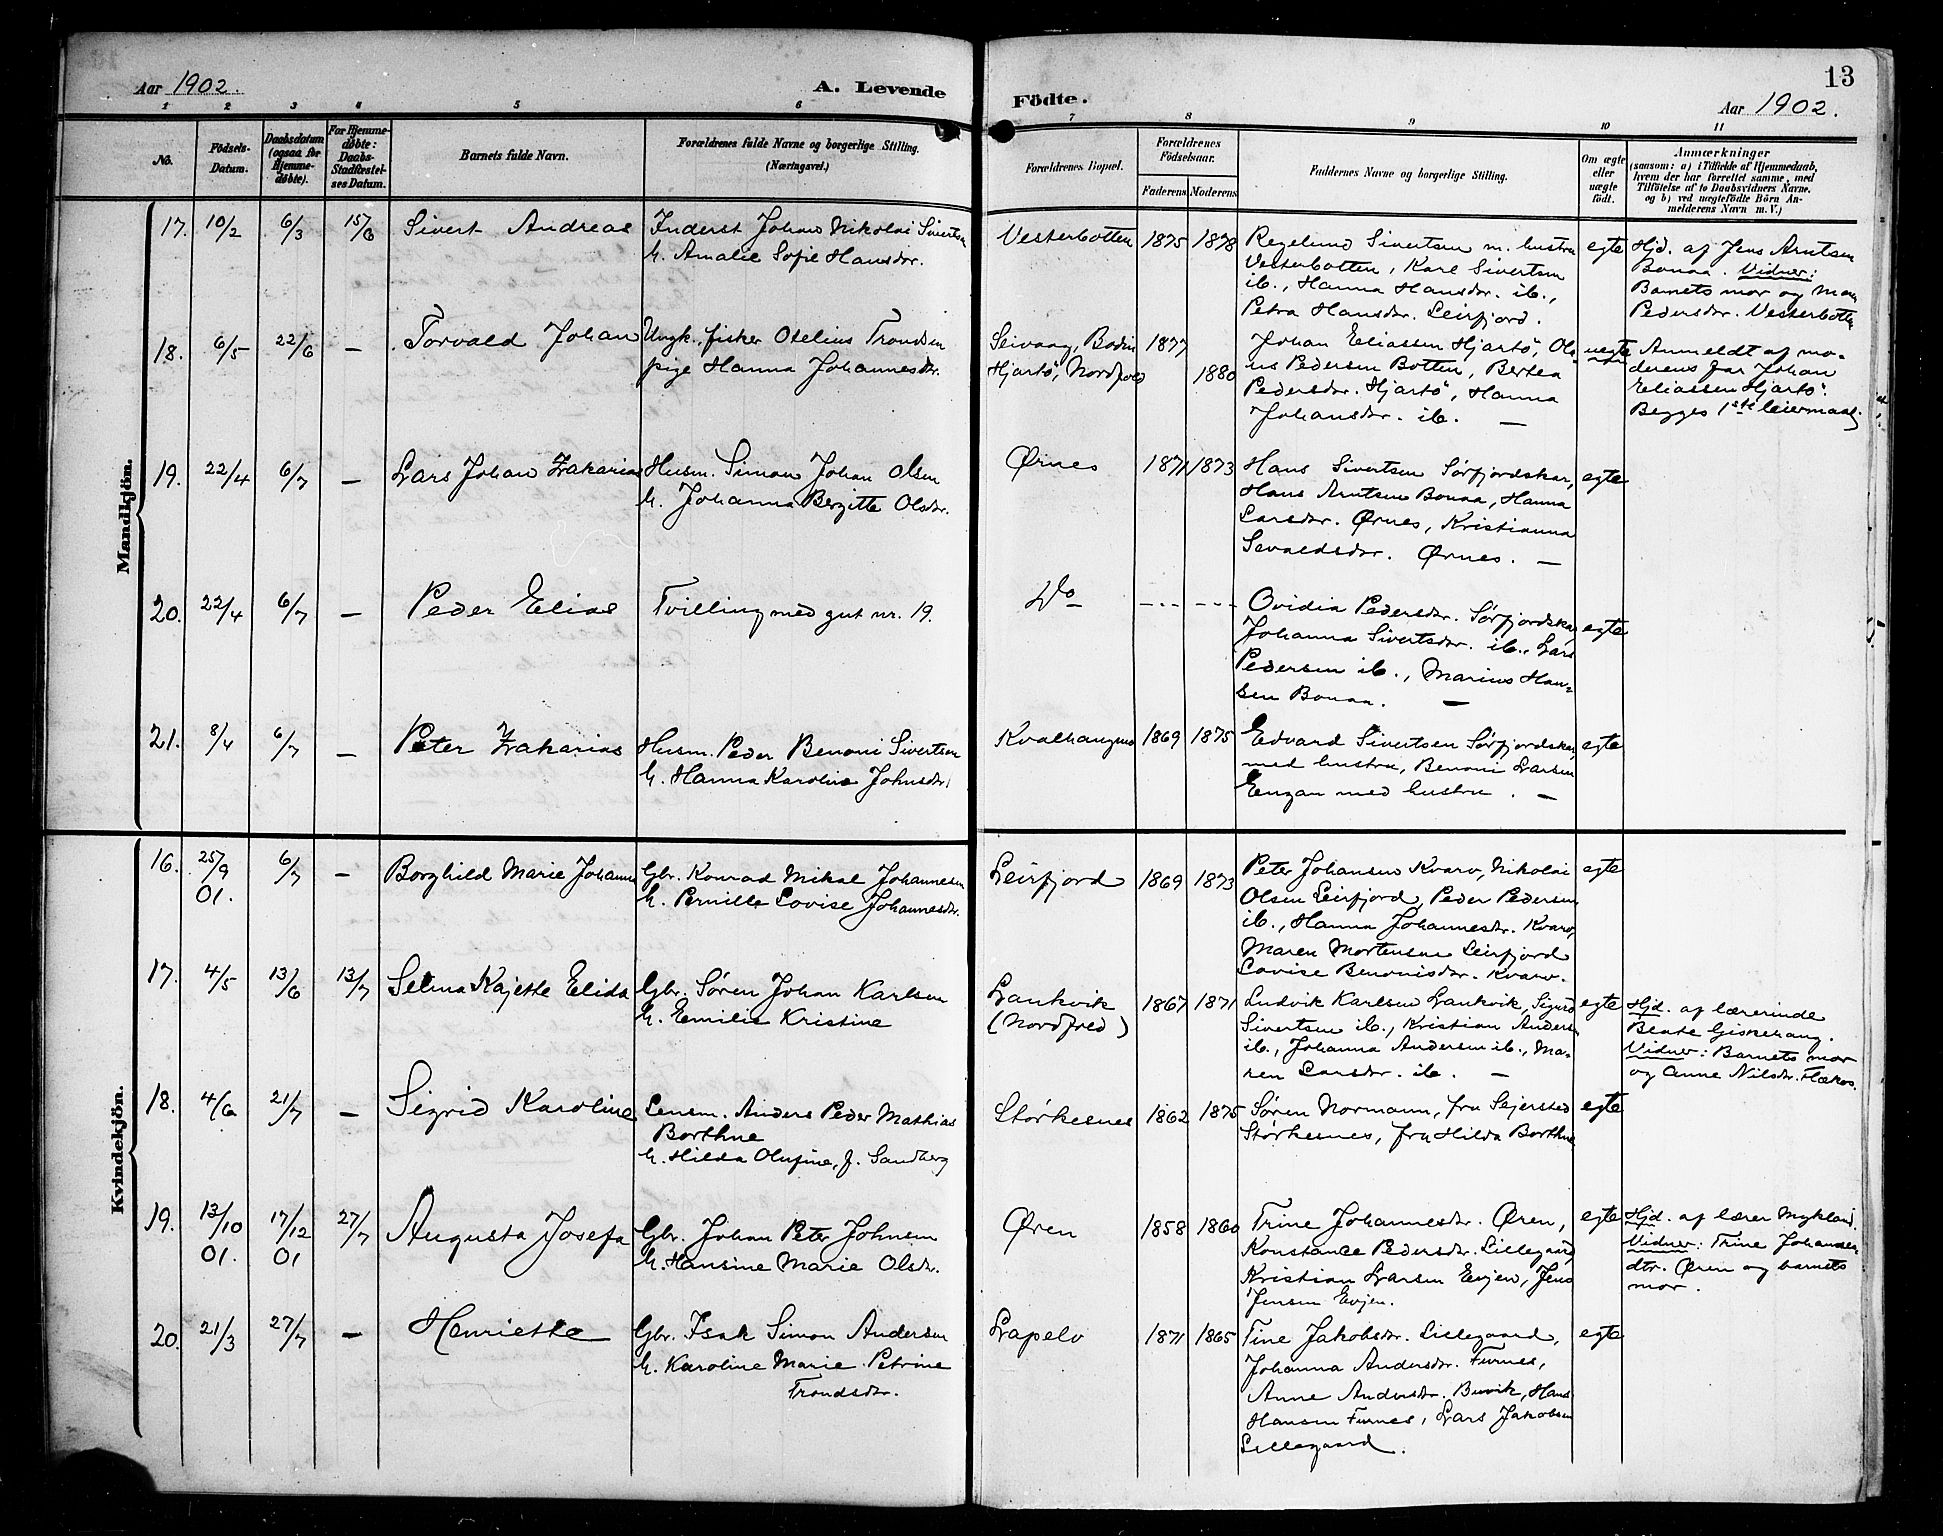 Aar 1902.
A. Levende
Födte.
13
Aar 1902.
1 2 3 4 5 6 7 8 9 10 11
No.
Födsels-
Datum.
Daabsdatum
(ogsaa for
Hjemme-
døbte).
For Hjemme-
døbte:
Daabs-
Stadfæstel-
ses Datum.
Barnets fulde Navn.
Forældrenes fulde Navne og borgerlige Stilling.
(Næringsvei.)
Forældrenes Bopæl.
Forældrenes
Födselsaar.
Faderens
Moderens
Faddernes Navne og borgerlige Stilling.
Om ægte
eller
uægte
født.
Anmærkninger
(saasom: a) i Tilfælde af Hjemmedaab,
hvem der har forrettet samme, med
Tilføielse af to Daabsvidners Navne.
og b) ved uægtefödte Börn An-
melderens Navn m. V.)
Mandkjön.
17. 10/2 6/3 15/6 Sivert Andreas
Inderst Johan Nikolai Sivertsen
h. Amalie Sofie Hansdr.
Vesterbotten 1875 1878
Regelund Sivertsen m. hustru
Vesterbotten, Karl Sivertsen
ib., Hanna Hansdr. ib.,
Petra Hansdr. Leirfjord.
egte
Hjd. af Jens Arntsen
Bonaa. Vidner:
Barnets mor og
Pedersdr. Vesterbotten
18. 6/5 22/6 — Torvald Johan
Ungk. fisker Otelius Trondsen
pige Hanna Johannesdr.
Seivaag, Bodin 1877
Hjartö, Nordfold 1880
Johan Eliassen Hjartö, Ol-
us Pedersen Botten, Bertea
Pedersdr. Hjartö, Hanna
Johansdr. ib. —
uegte
Anmeldt af mo-
derens far Johan
Eliassen Hjartö.
Begges 1ste leiermaal.
19. 22/4 6/7 — Lars Johan Zakarias
Husm. Simon Johan Olsen
h. Johanna Bergitte Olsdr.
Ørnes 1871 1873
Hans Sivertsen Sørfjordskar,
Hans Arntsen Bonaa, Hanna
Larsdr. Ørnes, Kristianna
Sevaldsdr. Ørnes. —
egte
20. 22/4 6/7 — Peder Elias
Tvilling med gut nr. 19.
Do - - - - - -
Ovidia Pedersdr. Sørfjordskar,
Johanna Sivertsdr. ib., Lars
Pedersen ib., Marius Han-
sen Bonaa. —
egte
21. 8/4 6/7 — Peter Zakarias
Husm. Peder Benoni Sivertsen
h. Hanna Karoline Johnsdr.
1869 1875
Edvard Sivertsen Sørfjordskar,
med hustru, Benoni Larsen
Engan med hustru. —
egte
Kvindekjön.
16. 25/9 01. 6/7 — Borghild Marie Johanna
Gbr. Konrad Mikal Johannesen
h. Pernille Lovise Johannesdr.
Leirfjord 1869 1873
Peter Johansen Kvarv, Nikolai
Olsen Leirfjord, Peder Pedersen
ib., Hanna Johannesdr. Kvarv,
Maren Mortensen Leirfjord
Lovise Benonisdr. Kvarv.
egte
17. 4/5 13/6 13/7 Selma Kajette Elida
Gbr. Søren Johan Karlsen
h. Emilie Kristine
Lankvik
(Nordfold) 1867 1871
Ludvik Karlsen Lankvik, Sigurd
Sivertsen ib., Kristian Anders.
ib., Johanna Andersen ib., Ma-
ren Larsdr. ib. —
egte
Hjd. af lærerinde
Beate Giskehaug.
Vidner: Barnets mor
og Anne Nilsdr. Flækos.
18. 4/6 21/7 — Sigrid Karoline
Lensm. Anders Peder Mathias
Borthne
h. Hilda Olufine, f. Sandberg
Størkesnes 1862 1875
Søren Normann, fru Sejersted
Størkesnes, fru Hilda Borthne
egte
19. 13/10 01. 17/12 01 27/7 Augusta Josefa
Gbr. Johan Peter Johnsen
h. Hansine Marie Olsdr.
Øren 1858 1860
Trine Johannesdr. Øren,
Konstance Pedersdr. Lillegaard,
Kristian Larsen Evjen, Jens
Jensen Evjen.
egte
Hjd. af lærer Mykland.
Vidner: Trine Johannes-
dtr. Øren og barnets
mor.
20. 21/3 27/7 — Henriette
Gbr. Isak Simon Andersen
h. Karoline Marie Petrine
Trondsdr.
Lapelv 1871 1865
Tine Jakobsdr. Lillegaard,
Johanna Andersdr. Furnes,
Anne Andersdr. Buvik, Hans
Hansen Furnes, Lars Jakobsen
Lillegaard.
egte